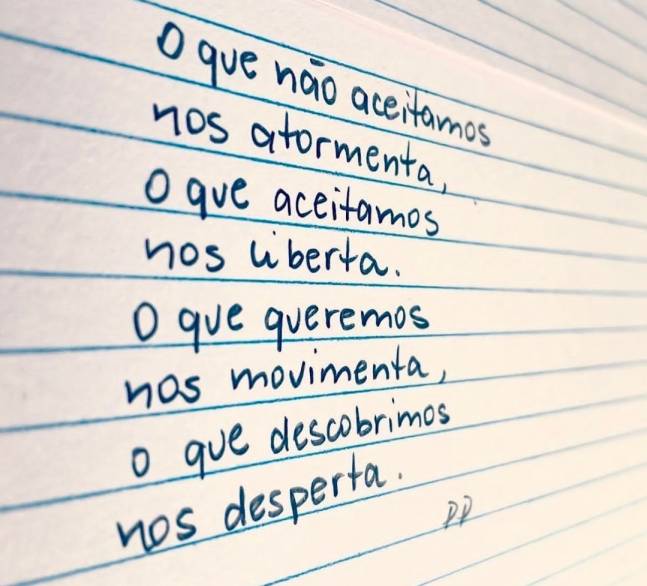 O que não aceitamos
nos atormenta,
o que aceitamos
nos liberta.
O que queremos
nos movimenta,
o que descobrimos
nos desperta.
PP